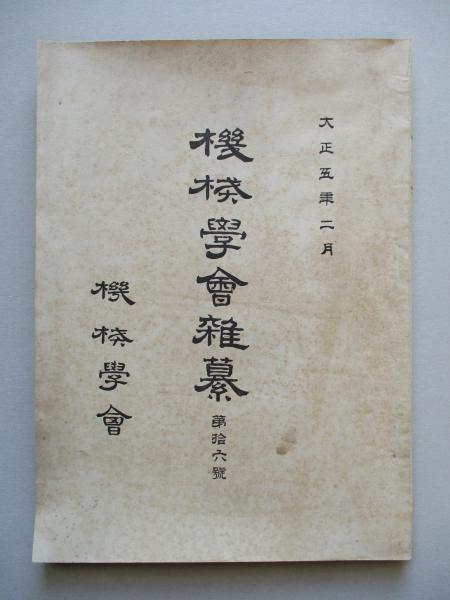 大正五年二月
機械學會雜纂 第拾六號
機械學會